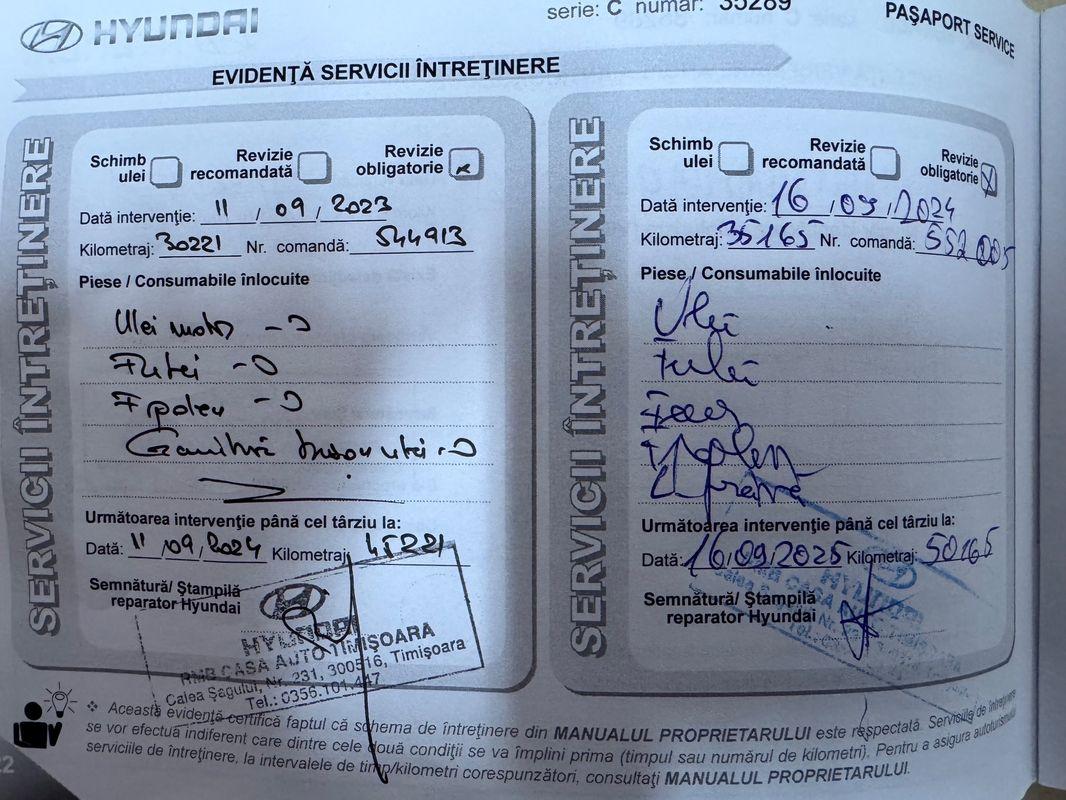 HYUNDAI
serie: C număr: 35289
PAŞAPORT SERVICE
EVIDENŢĂ SERVICII ÎNTREŢINERE
SERVICII ÎNTREŢINERE
Schimb ulei
Revizie recomandată
Revizie obligatorie x
Dată intervenţie: 11 / 09 / 2023
Kilometraj: 30221 Nr. comandă: 544913
Piese / Consumabile înlocuite
Ulei motor
F ulei
F polen
Următoarea intervenţie până cel târziu la:
Dată: 11 / 09 / 2024 Kilometraj: 45221
Semnătură/ Ştampilă
reparator Hyundai
HYUNDAI
RMB CASA AUTO TIMIŞOARA
Calea Şagului, Nr. 231, 300516, Timişoara
Tel.: 0356.101.447
SERVICII ÎNTREŢINERE
Schimb ulei
Revizie recomandată
Revizie obligatorie x
Dată intervenţie: 16 / 09 / 2024
Kilometraj: 35165 Nr. comandă: 552005
Piese / Consumabile înlocuite
Ulei
F ulei
F aer
F polen
Următoarea intervenţie până cel târziu la:
Dată: 16 / 09 / 2025 Kilometraj: 50165
Semnătură/ Ştampilă
reparator Hyundai
HYUNDAI
❖ Această evidenţă certifică faptul că schema de întreţinere din MANUALUL PROPRIETARULUI este respectată. Serviciile de întreţinere
se vor efectua indiferent care dintre cele două condiţii se va împlini prima (timpul sau numărul de kilometri). Pentru a asigura autoturismului
serviciile de întreţinere, la intervalele de timp/kilometri corespunzători, consultaţi MANUALUL PROPRIETARULUI.